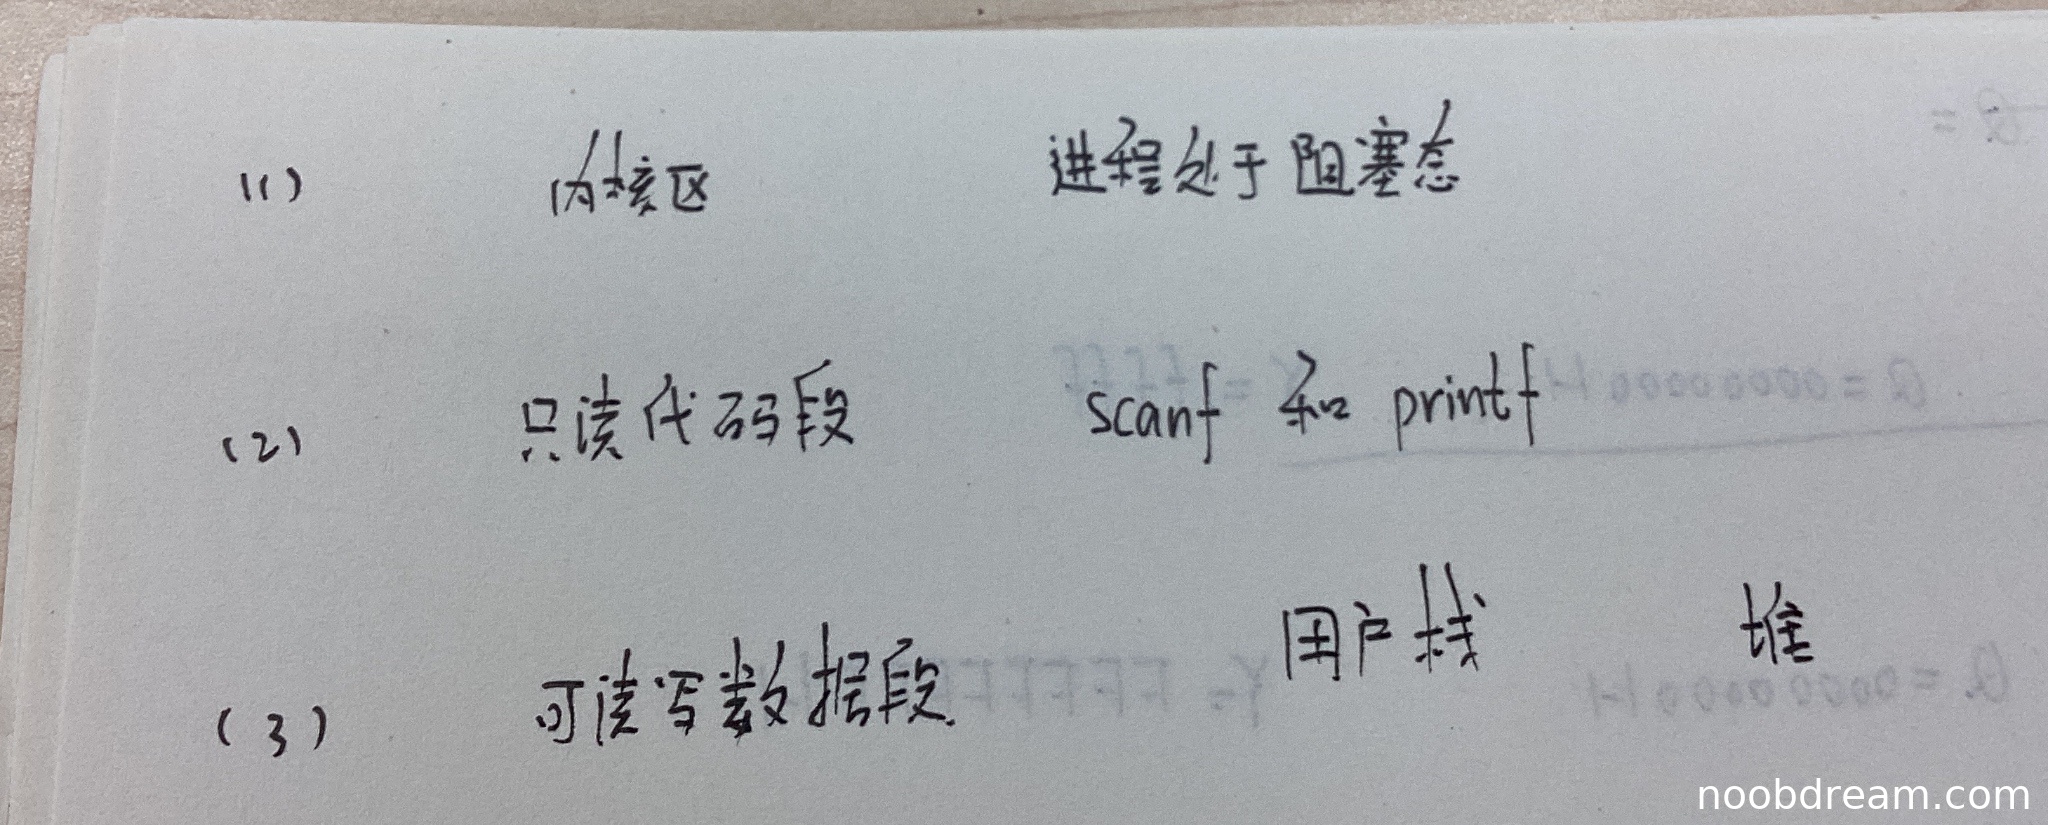 (1) 内核区 进程处于阻塞态
(2) 只读代码段 scanf 和 printf
(3) 可读写数据段. 用户栈 堆
noobdream.com